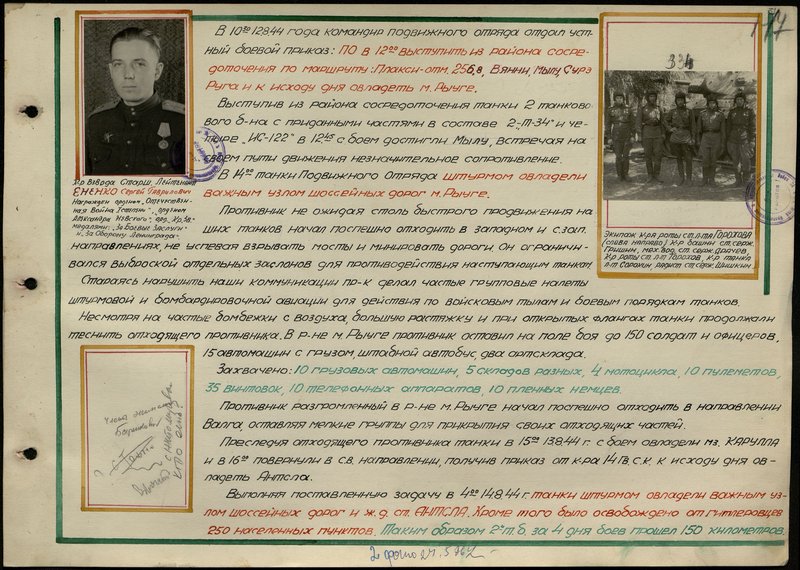 117
В 10⁰⁰ 12.8.44 года командир подвижного отряда отдал уст-
ный боевой приказ: ПО в 12⁰⁰ выступить из района сосре-
доточения по маршруту: Плакси-отм. 256,8, Вянни, Мылу, Сурэ
Руга и к исходу дня овладеть м. Рыуге.
Выступив из района сосредоточения танки 2 танково-
го б-на с приданными частями в составе 2-„Т-34" и че-
тыре „ИС-122" в 12⁴⁵ с боем достигли Мылу, встречая на
своем пути движения незначительное сопротивление.
В 14⁰⁰ танки Подвижного Отряда штурмом овладели
важным узлом шоссейных дорог м. Рыуге.
Противник не ожидая столь быстрого продвижения на-
ших танков начал поспешно отходить в западном и с.зап.
направлениях, не успевая взрывать мосты и минировать дороги. Он ограничи-
вался выброской отдельных заслонов для противодействия наступающим танкам.
Стараясь нарушить наши коммуникации пр-к делал частые групповые налеты
штурмовой и бомбардировочной авиации для действия по войсковым тылам и боевым порядкам танков.
Несмотря на частые бомбежки с воздуха, большую растяжку и при открытых флангах танки продолжали
теснить отходящего противника. В р-не м. Рыуге противник оставил на поле боя до 150 солдат и офицеров,
15 автомашин с грузом, штабной автобус, два артсклада.
Захвачено: 10 грузовых автомашин, 5 складов разных, 4 мотоцикла, 10 пулеметов,
35 винтовок, 10 телефонных аппаратов, 10 пленных немцев.
Противник разгромленный в р-не м. Рыуге начал поспешно отходить в направлении
Валга, оставляя мелкие группы для прикрытия своих отходящих частей.
Преследуя отходящего противника танки в 15⁰⁰ 13.8.44 г. с боем овладели мз. КАРУЛЛА
и в 16⁰⁰ повернули в С.В. направлении, получив приказ от к-ра 14 Гв. С.К. к исходу дня ов-
ладеть Антсла.
Выполняя поставленную задачу в 4⁰⁰ 14.8.44 г. танки штурмом овладели важным уз-
лом шоссейных дорог и ж.д. ст. АНТСЛА. Кроме того было освобождено от гитлеровцев
250 населенных пунктов. Таким образом 2ᵒᵉ т.б. за 4 дня боев прошел 150 километров.
К-р Взвода Старш. Лейтенант
ЕНЕНКО Сергей Гаврилович
Награжден орденом „Отечествен-
ная Война I степени", орденом
Александра Невского", орд. Кр. Зв.
медалями: „За боевые Заслуги"
и „За Оборону Ленинграда"
334
Экипаж К-ра роты ст. л-та ГОРОХОВА
(слева направо) К-р башни ст. серж.
Гришин, мех. вод. ст. серж. Драчев,
К-р роты ст. л-т Горохов, К-р танка
л-т Сорокин, радист ст. серж. Шишкин.
Члены экипажа
с наколенника
кто они?
2 фото 27.5.76г.